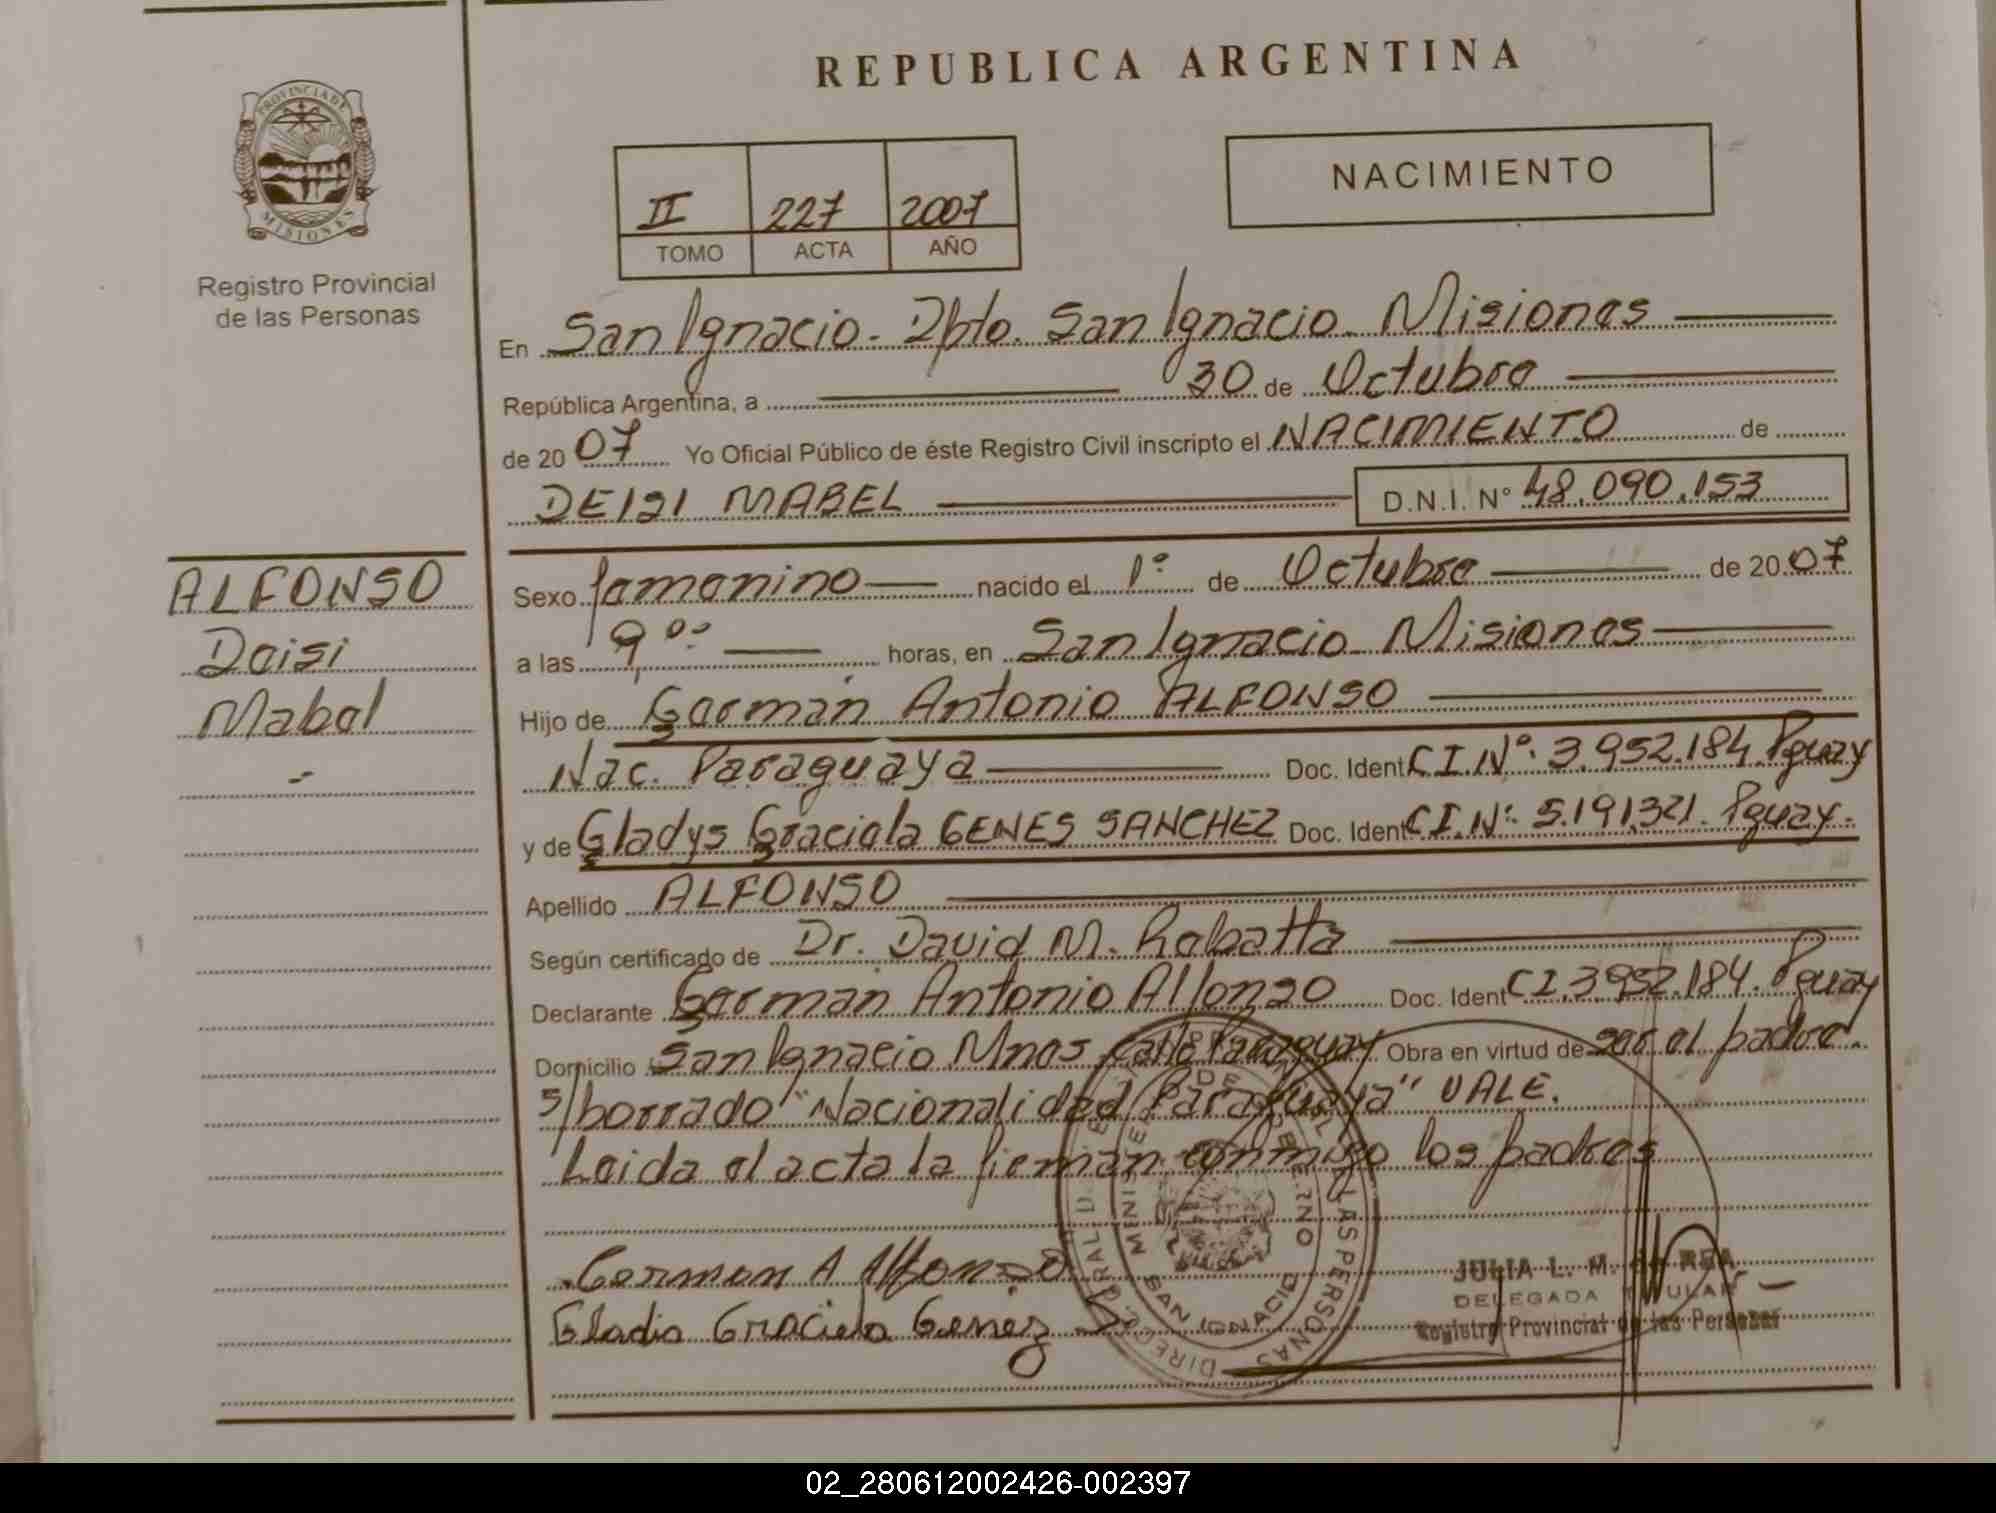 REPUBLICA ARGENTINA
PROVINCIA DE
MISIONES
Registro Provincial
de las Personas
II 227 2007
TOMO ACTA AÑO
NACIMIENTO
En San Ignacio - Dpto. San Ignacio - Misiones
República Argentina, a 30 de Octubre
de 2007 Yo Oficial Público de éste Registro Civil inscripto el NACIMIENTO de
DEISI MABEL D.N.I. Nº 48.090.153
ALFONSO
Deisi
Mabel
-
Sexo femenino nacido el 1º de Octubre de 2007
a las 9,00 horas, en San Ignacio - Misiones
Hijo de Germán Antonio ALFONSO
Nac. Paraguaya Doc. Ident CI.Nº: 3.952.184. Pguay
y de Gladys Graciela GENES SANCHEZ Doc. Ident C.I.Nº: 5.191.321. Pguay.
Apellido ALFONSO
Según certificado de Dr. David M. Rabatta
Declarante Germán Antonio Alfonso Doc. Ident CI.3.952.184. Pguay
Domicilio San Ignacio Mnes Calle Paraguay Obra en virtud de ser el padre.
s/borrado "Nacionalidad Paraguaya" VALE.
Leida el acta la firman conmigo los padres
German A Alfonso
Gladis Graciela Genez S.
SAN IGNACIO
JULIA L. M. de REA
DELEGADA TITULAR
Registro Provincial de las Personas
02_280612002426-002397